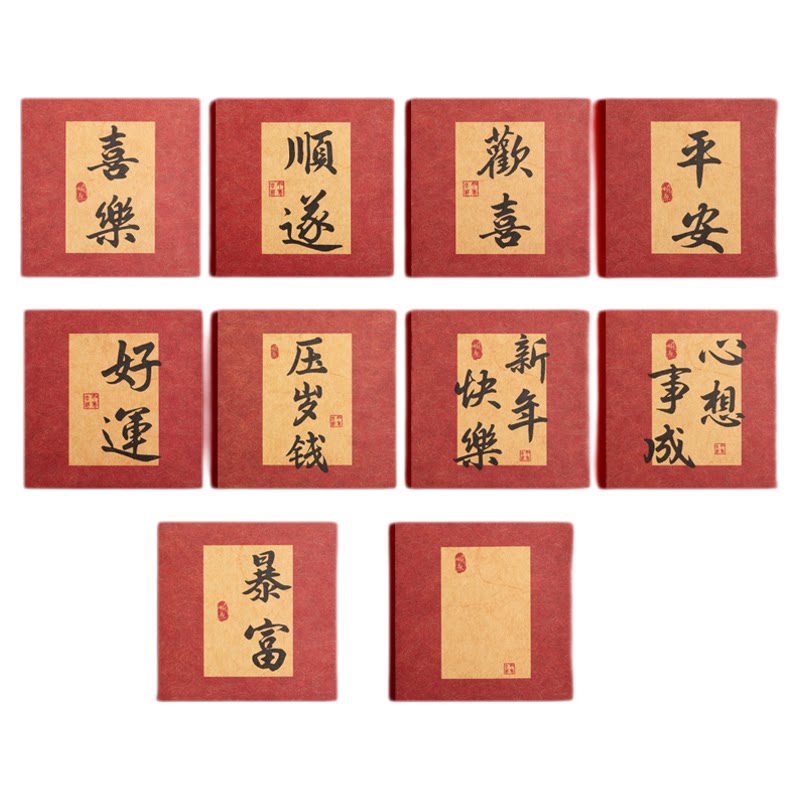 喜樂
順遂
歡喜
平安
好運
压岁钱
新年
快樂
心想
事成
暴富